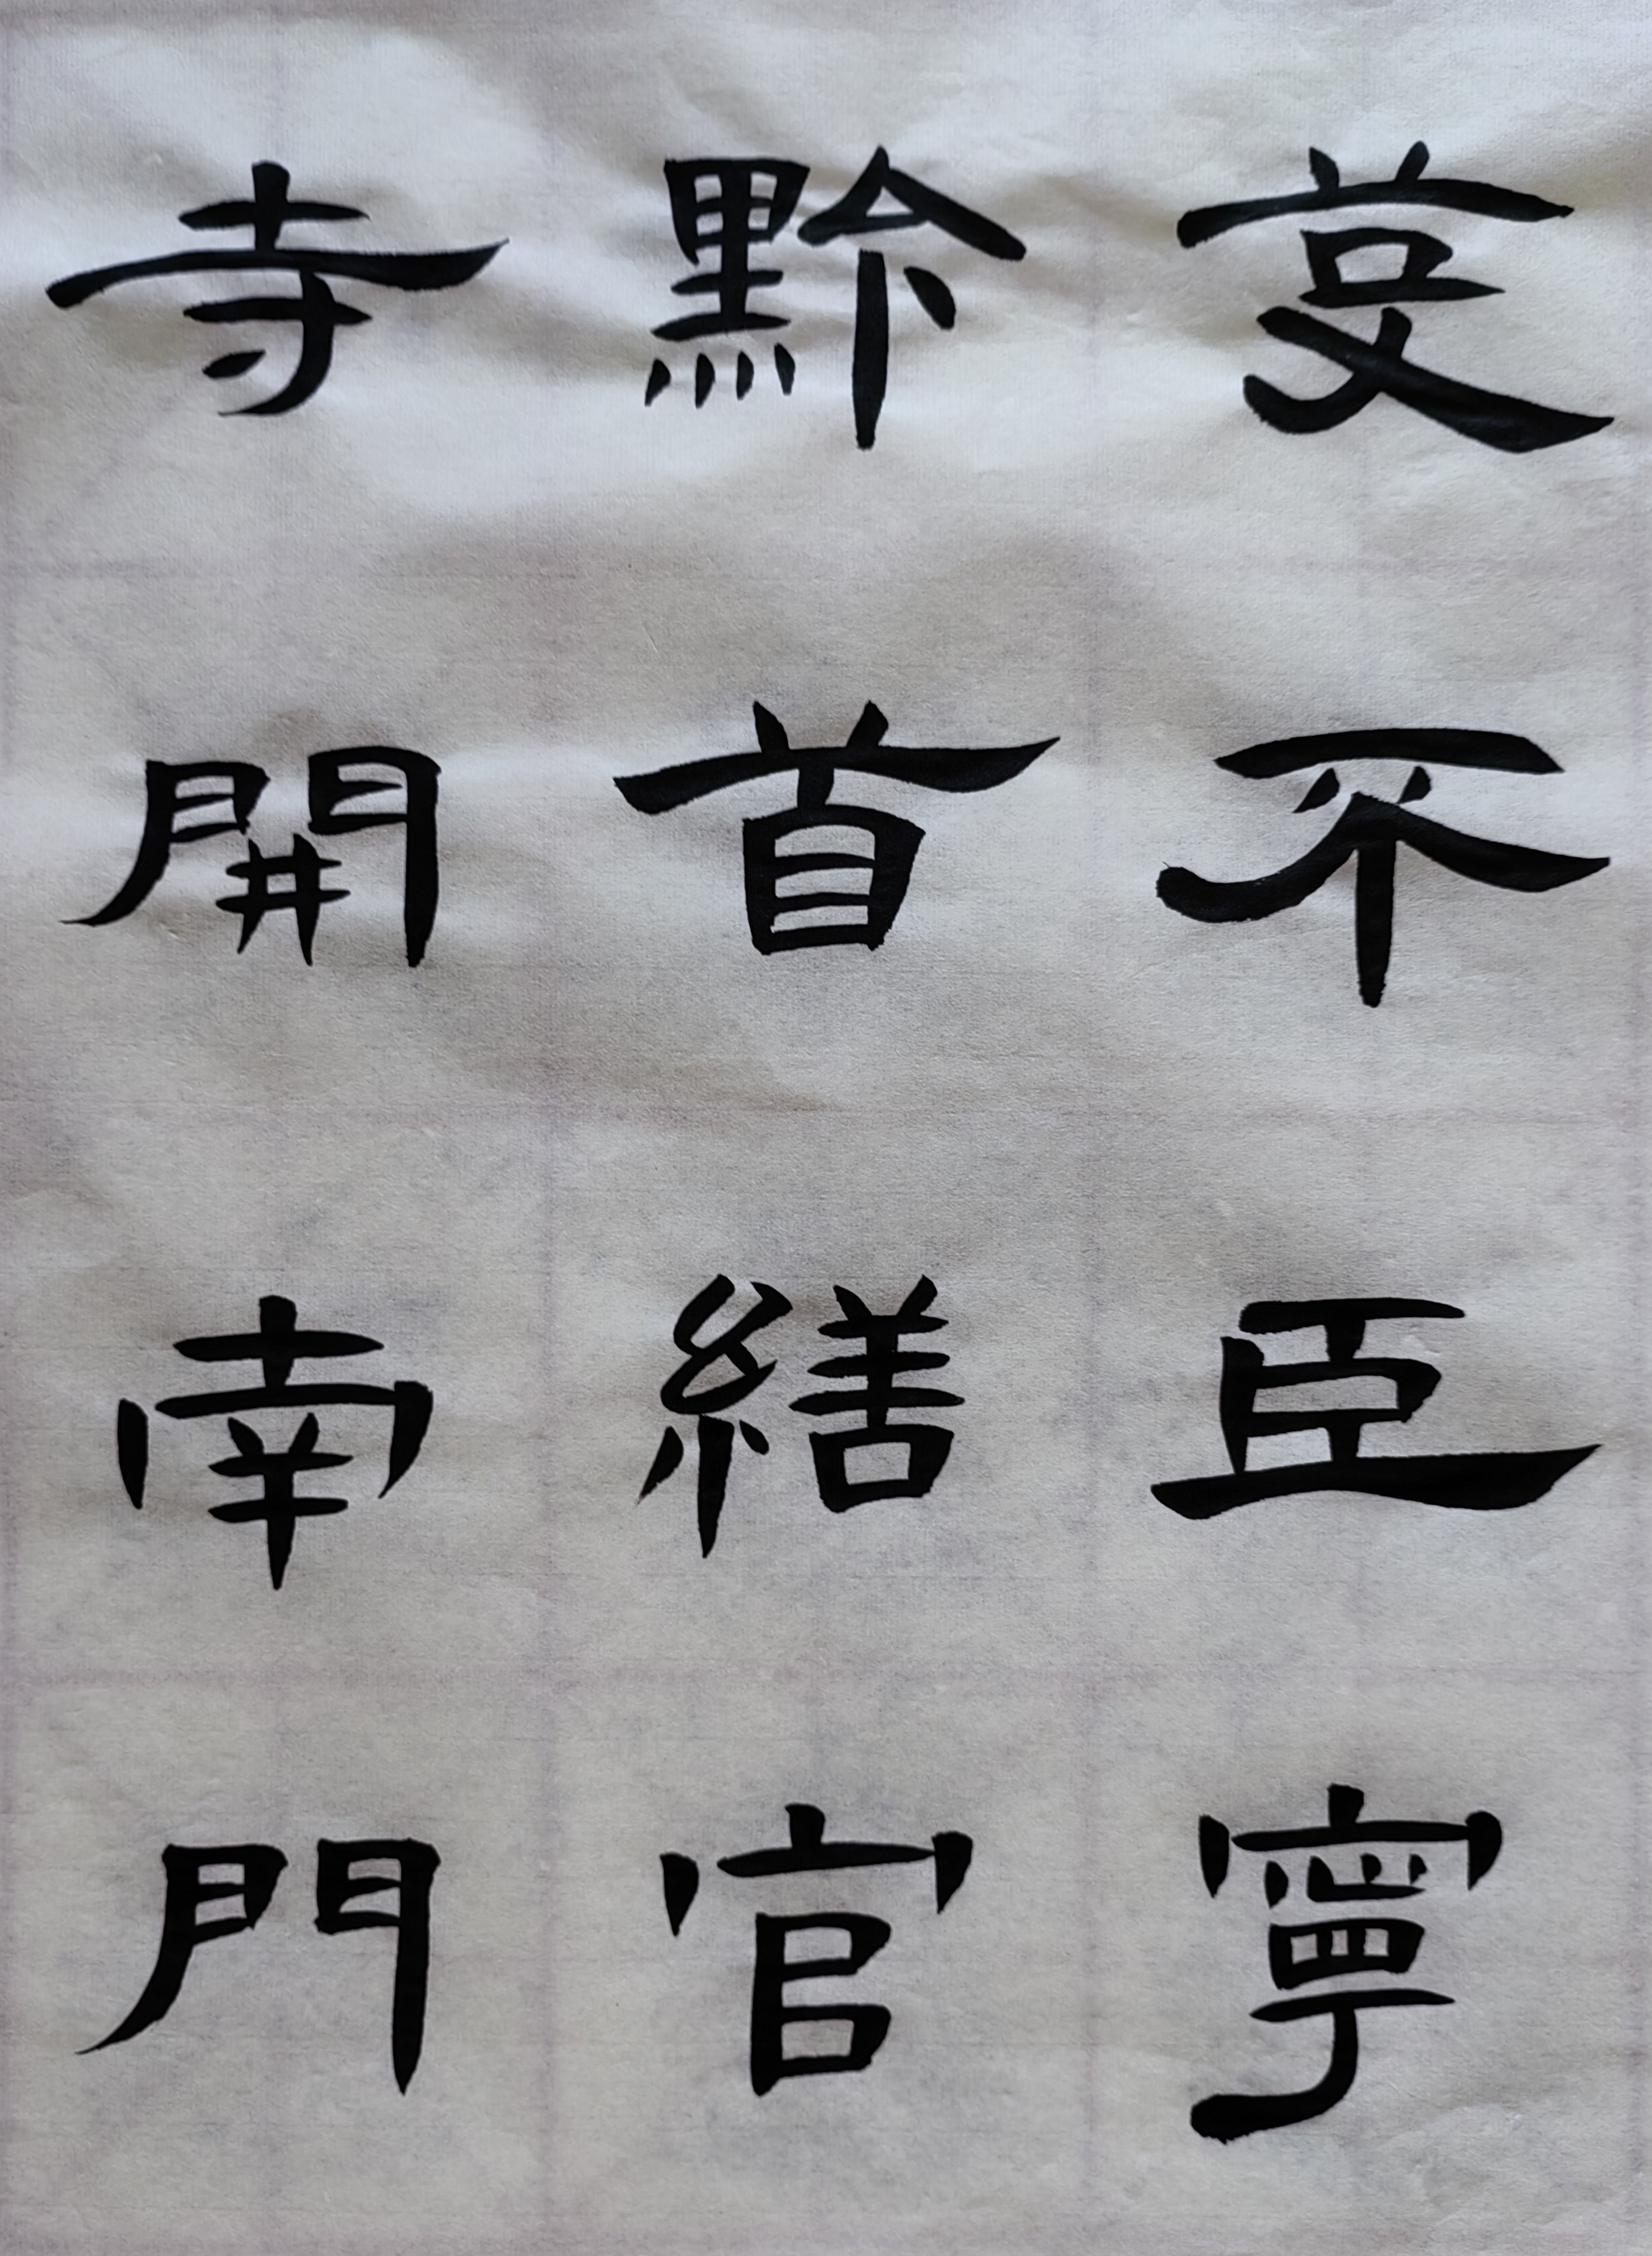 芟不臣寧
黔首繕官
寺開南門